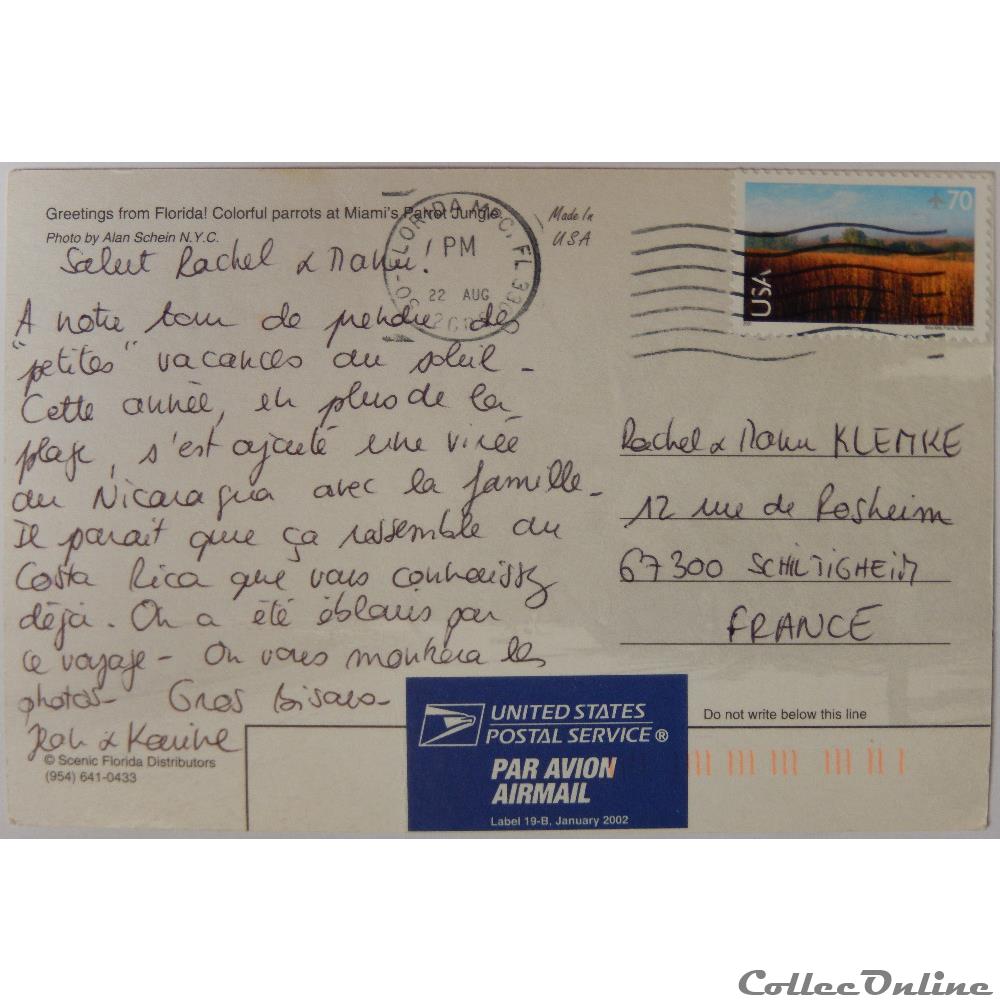 Greetings from Florida! Colorful parrots at Miami's Parrot Jungle
Photo by Alan Schein N.Y.C.
Made in
USA
FLORIDA FL
PM
22 AUG
70
USA
Salut Rachel & Manu!
A notre tour de prendre des
"petites" vacances au soleil -
Cette année, en plus de la
plage, s'est ajouté une virée
au Nicaragua avec la famille -
Il parait que ça ressemble au
Costa Rica que vous connaissez
déjà. On a été éblouis par
ce voyage - On vous montrera les
photos - Gros bisous -
& Karine
Rachel & Manu KLEMKE
12 rue de Rosheim
67300 SCHILTIGHEIM
FRANCE
© Scenic Florida Distributors
(954) 641-0433
UNITED STATES
POSTAL SERVICE ®
PAR AVION
AIRMAIL
Label 19-B, January 2002
Do not write below this line
CollecOnline